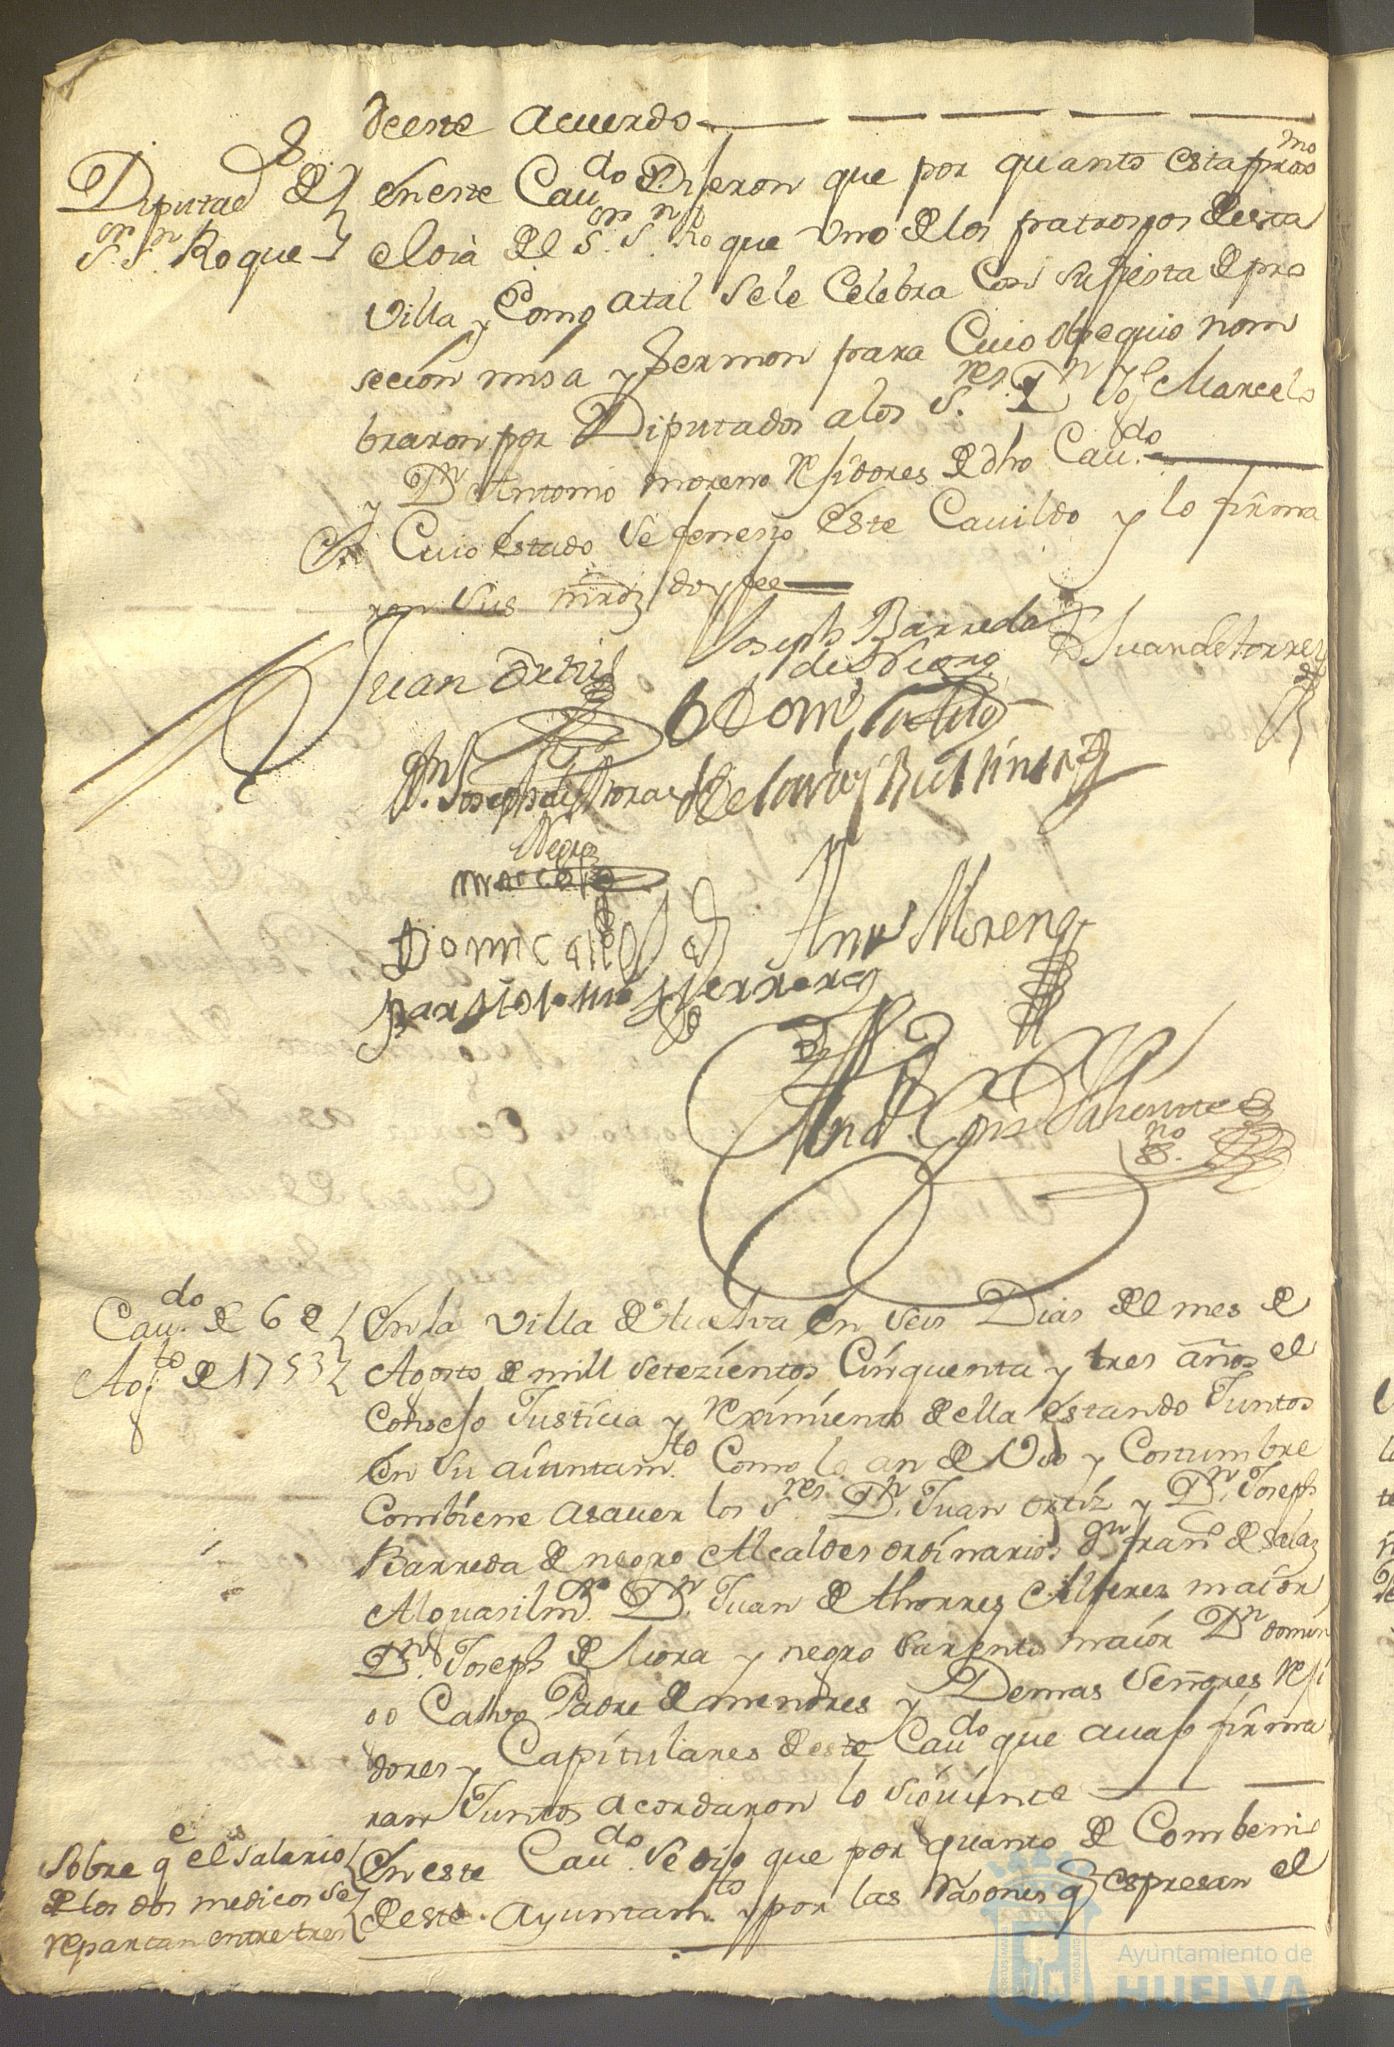 deeste acuerdo
Diputad.s de
S.or S.n Roque
En este Cau.do Dijeron que por quanto esta proxmo
el dia del S.or S.n Roque Uno de los patronos de esta
Villa y Como atal se le Celebra Con su fiesta de pro
secion misa y sermon para Cuio obsequio nom
braron por Diputados a los S.res D.n Jof Marcelo
y D.n Antonio moreno rejidores de dho Cau.do
En Cuio estado se feneció este Cauildo y lo firma
ron sus mrdz doy fee
Juan Ortiz
Joseph Barreda
de Negro
D Juan de torrez
D.n Joseph de Mora
Negro
marcelo
Ant Moreno
Domi Calbo
Bartolome Herrera
Cau.do de 6 de
Ago.to de 1753
En la Villa de Huelva En seis Dias del mes de
Agosto de mill setezientos Cinquenta y tres años el
Consejo Justicia y reximiento de ella estando Juntos
En su aiuntam.to Como lo an de Uso y Costumbre
Combiene asauer los S.res D.n Juan Ortiz y D.n Joseph
Barreda de negro Alcaldes ordinarios D.n fran.co de Salaz
Alguasil m.r D.n Juan de thorres Alferez maior
D.n Joseph de Mora y negro Sarjento maior D.n domin
go Calvo Padre de menores y Demas señores reji
dores y Capitulares de este Cau.do que auajo firma
ran Juntos acordaron lo siguiente
Sobre q.e el salario
de los dos medicos se
repartan entre tres
En este Cau.do se dijo que por quanto de Combenio
de este Ayuntam.to y por las rasones q espresan el
Ayuntamiento de
HUELVA